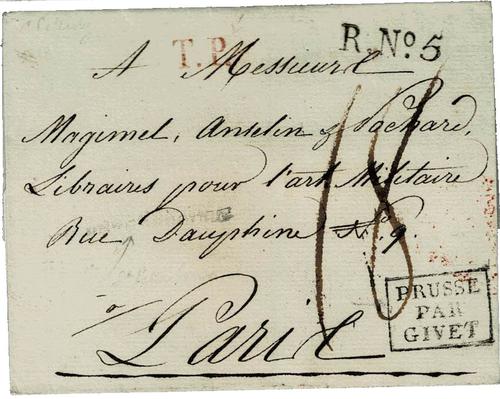 T.P.
R. No. 5
A Messieurs
Magimel, Anselin & Pochard,
Libraires pour l'art Militaire
Rue Dauphine No. 9.
à Paris
18
PRUSSE
PAR
GIVET